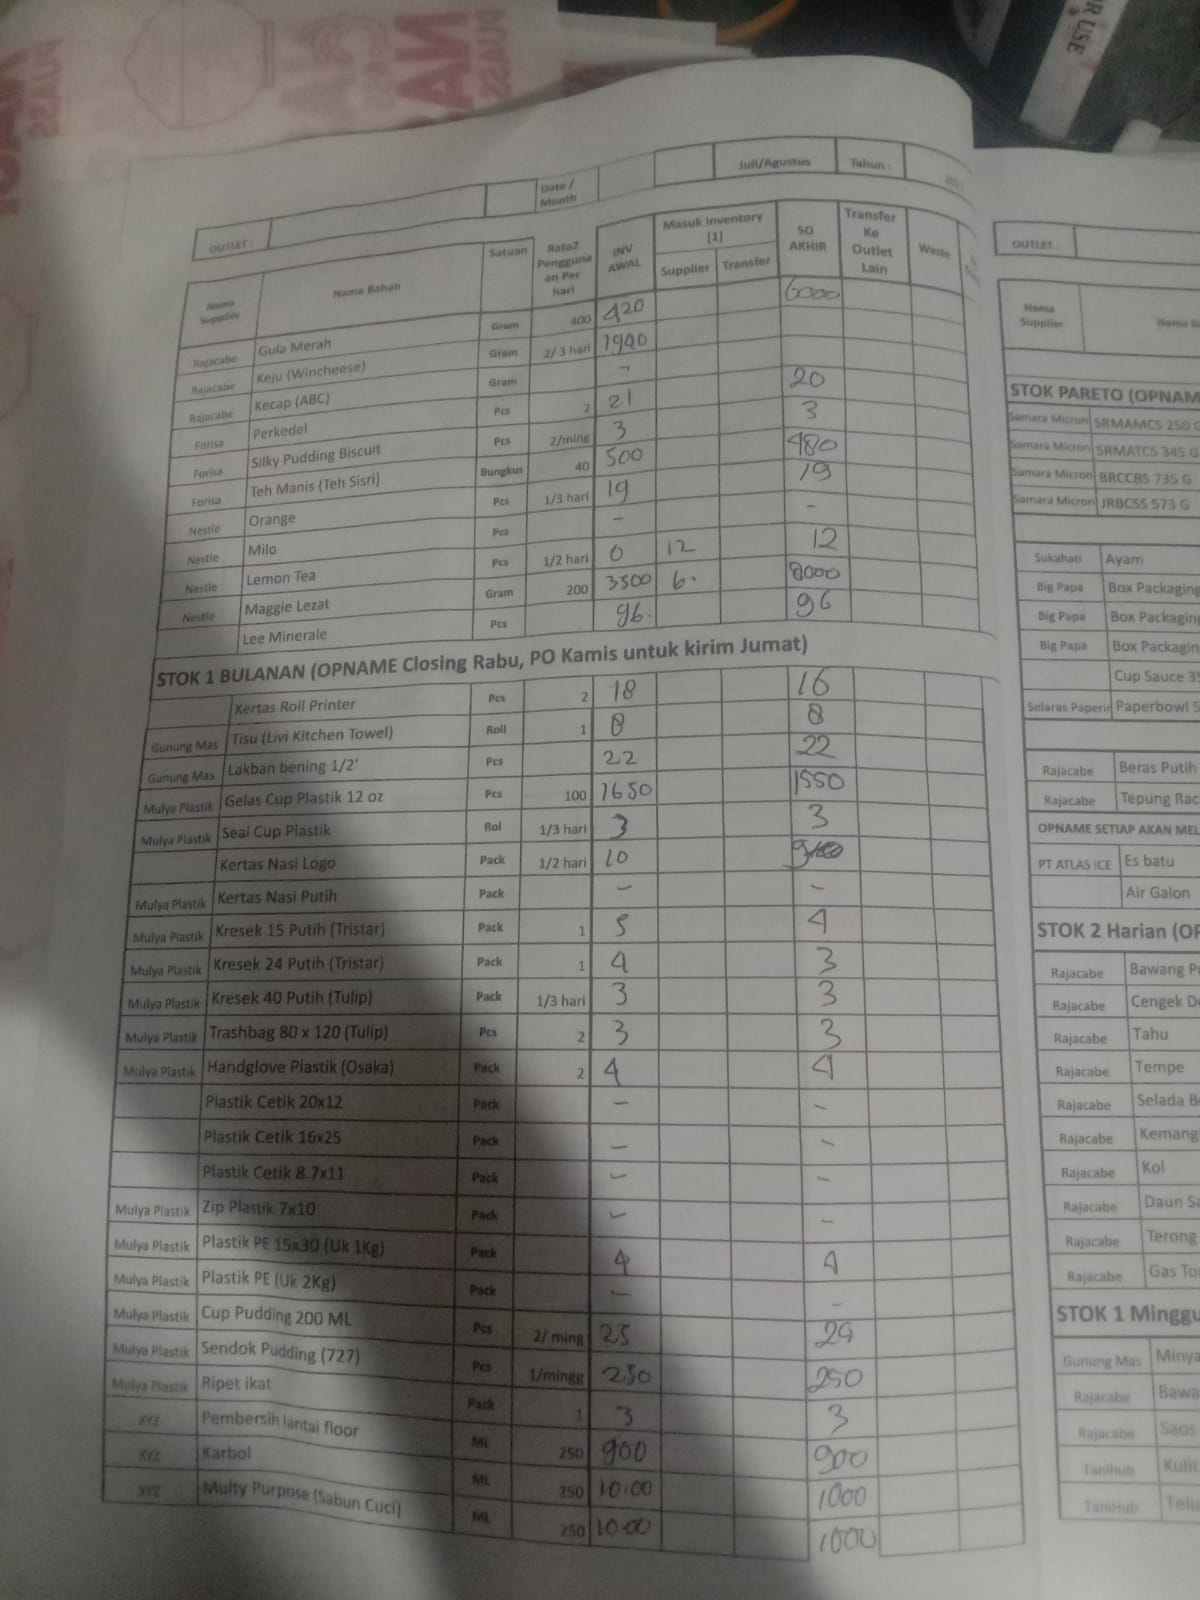 OR USE
Date / Month Juli/Agustus Tahun :
OUTLET :
Nama Supplier Nama Bahan Satuan Rata2 Penggunaan Per hari INV AWAL Masuk Inventory [1] Supplier Transfer SO AKHIR Transfer Ke Outlet Lain Waste
Rajacabe Gula Merah Gram 400 420 6000
Rajacabe Keju (Wincheese) Gram 2/ 3 hari 1940
Rajacabe Kecap (ABC) Gram -
Forisa Perkedel Pcs 2 21 20
Forisa Silky Pudding Biscuit Pcs 2/ming 3 3
Forisa Teh Manis (Teh Sisri) Bungkus 40 500 480
Nestle Orange Pcs 1/3 hari 19 19
Nestle Milo Pcs - -
Nestle Lemon Tea Pcs 1/2 hari 0 12 12
Nestle Maggie Lezat Gram 200 3500 6. 8000
Lee Minerale Pcs 96. 96
STOK 1 BULANAN (OPNAME Closing Rabu, PO Kamis untuk kirim Jumat)
Kertas Roll Printer Pcs 2 18 16
Gunung Mas Tisu (Livi Kitchen Towel) Roll 1 8 8
Gunung Mas Lakban bening 1/2' Pcs 22 22
Mulya Plastik Gelas Cup Plastik 12 oz Pcs 100 1650 1550
Mulya Plastik Seal Cup Plastik Rol 1/3 hari 3 3
Kertas Nasi Logo Pack 1/2 hari 10
Mulya Plastik Kertas Nasi Putih Pack - -
Mulya Plastik Kresek 15 Putih (Tristar) Pack 1 5 4
Mulya Plastik Kresek 24 Putih (Tristar) Pack 1 4 3
Mulya Plastik Kresek 40 Putih (Tulip) Pack 1/3 hari 3 3
Mulya Plastik Trashbag 80 x 120 (Tulip) Pcs 2 3 3
Mulya Plastik Handglove Plastik (Osaka) Pack 2 4 4
Plastik Cetik 20x12 Pack - -
Plastik Cetik 16x25 Pack - -
Plastik Cetik 8.7x11 Pack - -
Mulya Plastik Zip Plastik 7x10 Pack - -
Mulya Plastik Plastik PE 15x30 (Uk 1Kg) Pack 4 4
Mulya Plastik Plastik PE (Uk 2Kg) Pack - -
Mulya Plastik Cup Pudding 200 ML Pcs 2/ ming 25 24
Mulya Plastik Sendok Pudding (727) Pcs 1/mingg 250 250
Mulya Plastik Ripet ikat Pack 1 3 3
XYZ Pembersih lantai floor ML 250 900 900
XYZ Karbol ML 250 1000 1000
XYZ Multy Purpose (Sabun Cuci) ML 250 1000 1000
OUTLET :
Nama Supplier
STOK PARETO (OPNAM
Samara Micron SRMAMCS 250 G
Samara Micron SRMATCS 345 G
Samara Micron BRCCBS 735 G
Samara Micron JRBCSS 573 G
Sukahati Ayam
Big Papa Box Packaging
Big Papa Box Packaging
Big Papa Box Packagin
Cup Sauce 35
Selaras Paperin Paperbowl
Rajacabe Beras Putih
Rajacabe Tepung Rac
OPNAME SETIAP AKAN MEL
PT ATLAS ICE Es batu
Air Galon
STOK 2 Harian (OP
Rajacabe Bawang P
Rajacabe Cengek De
Rajacabe Tahu
Rajacabe Tempe
Rajacabe Selada B
Rajacabe Kemang
Rajacabe Kol
Rajacabe Daun Sa
Rajacabe Terong
Rajacabe Gas To
STOK 1 Minggu
Gunung Mas Minya
Rajacabe Bawa
Rajacabe Saos
Tanihub Kulit
TaniHub Telu